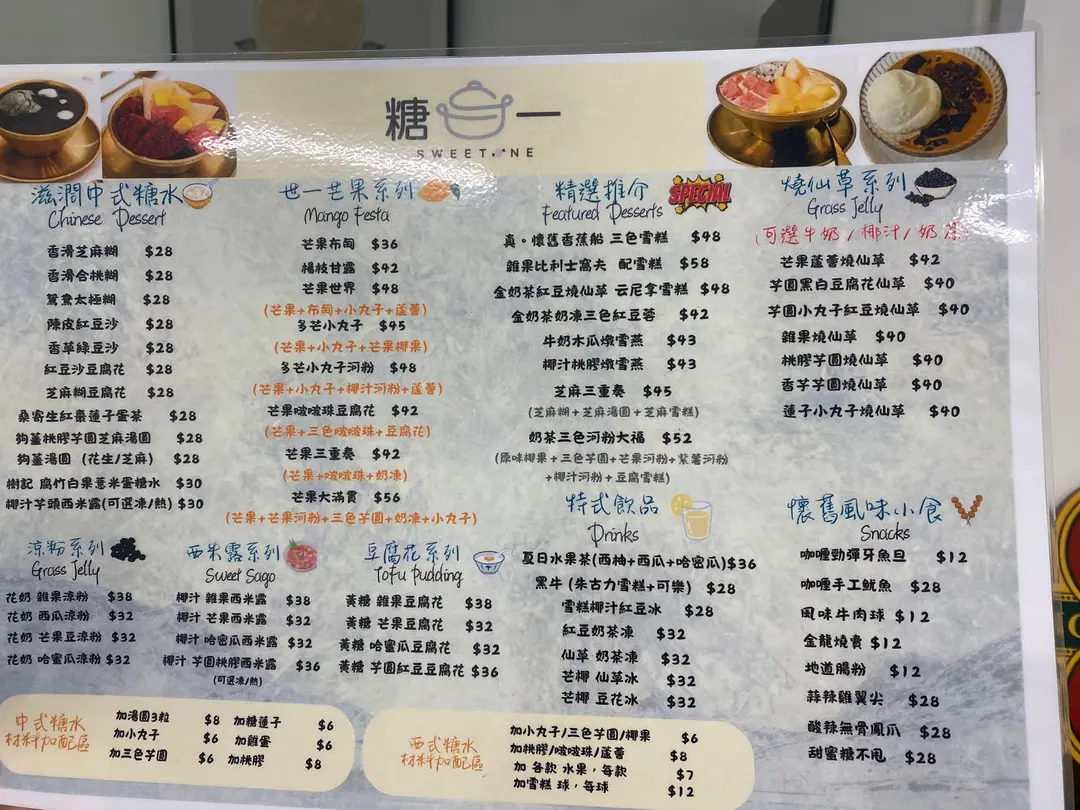 糖一
SWEET NE
滋潤中式糖水
Chinese Dessert
香滑芝麻糊 $28
香滑合桃糊 $28
鴛鴦太極糊 $28
陳皮紅豆沙 $28
香草綠豆沙 $28
紅豆沙豆腐花 $28
芝麻糊豆腐花 $28
桑寄生紅棗蓮子蛋茶 $28
鈎薑桃膠芋圓芝麻湯圓 $28
鈎薑湯圓 (花生/芝麻) $28
樹記 腐竹白果薏米蛋糖水 $30
椰汁芋頭西米露(可選凍/熱) $30
世一芒果系列
Mango Festa
芒果布甸 $36
楊枝甘露 $42
芒果世界 $48
(芒果+布甸+小丸子+蘆薈)
多芒小丸子 $45
(芒果+小丸子+芒果椰果)
多芒小丸子河粉 $48
(芒果+小丸子+椰汁河粉+蘆薈)
芒果啵啵珠豆腐花 $42
(芒果+三色啵啵珠+豆腐花)
芒果三重奏 $42
(芒果+啵啵珠+奶凍)
芒果大滿貫 $56
(芒果+芒果河粉+三色芋圓+奶凍+小丸子)
精選推介
SPECIAL
Featured Desserts
真。懷舊香蕉船 三色雪糕 $48
雜果比利士窩夫 配雪糕 $58
金奶茶紅豆燒仙草 云尼拿雪糕 $48
金奶茶奶凍三色紅豆蓉 $42
牛奶木瓜燉雪燕 $43
椰汁桃膠燉雪燕 $43
芝麻三重奏 $45
(芝麻糊+芝麻湯圓+芝麻雪糕)
奶茶三色河粉大福 $52
(原味椰果+三色芋圓+芒果河粉+紫薯河粉
+椰汁河粉+豆腐雪糕)
燒仙草系列
Grass Jelly
(可選牛奶/椰汁/奶茶)
芒果蘆薈燒仙草 $42
芋圓黑白豆腐花仙草 $40
芋圓小丸子紅豆燒仙草 $40
雜果燒仙草 $40
桃膠芋圓燒仙草 $40
香芋芋圓燒仙草 $40
蓮子小丸子燒仙草 $40
涼粉系列
Grass Jelly
花奶 雜果涼粉 $38
花奶 西瓜涼粉 $32
花奶 芒果豆涼粉 $32
花奶 哈蜜瓜涼粉 $32
西米露系列
Sweet Sago
椰汁 雜果西米露 $38
椰汁 芒果西米露 $32
椰汁 哈蜜瓜西米露 $32
椰汁 芋圓桃膠西米露 $36
(可選凍/熱)
豆腐花系列
Tofu Pudding
黃糖 雜果豆腐花 $38
黃糖 芒果豆腐花 $32
黃糖 哈蜜瓜豆腐花 $32
黃糖 芋圓紅豆豆腐花 $36
特式飲品
Drinks
夏日水果茶(西柚+西瓜+哈蜜瓜)$36
黑牛 (朱古力雪糕+可樂) $28
雪糕椰汁紅豆冰 $28
紅豆奶茶凍 $32
仙草 奶茶凍 $32
芒椰 仙草冰 $32
芒椰 豆花冰 $32
懷舊風味小食
Snacks
咖喱勁彈牙魚旦 $12
咖喱手工魷魚 $28
風味牛肉球 $12
金龍燒賣 $12
地道腸粉 $12
蒜辣雞翼尖 $28
酸辣無骨鳳爪 $28
甜蜜糖不甩 $28
中式糖水
材料加配區
加湯圓3粒 $8 加糖蓮子 $6
加小丸子 $6 加雞蛋 $6
加三色芋圓 $6 加桃膠 $8
西式糖水
材料加配區
加小丸子/三色芋圓/椰果 $6
加桃膠/啵啵珠/蘆薈 $8
加 各款 水果，每款 $7
加雪糕 球，每球 $12